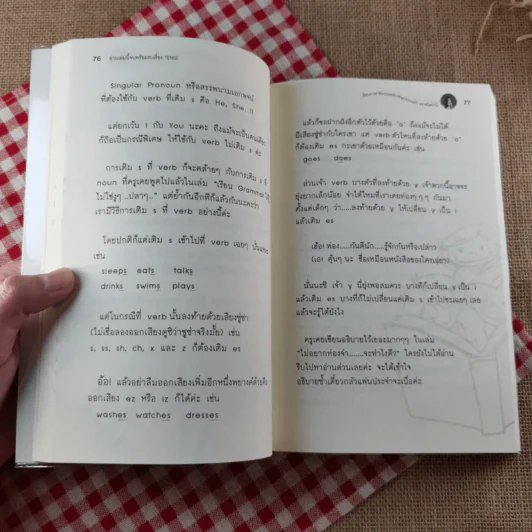 76
Singular Pronoun หรือสรรพนามเอกพจน์
ที่ต้องใช้กับ verb ที่เติม s คือ He, She, It
แต่ยกเว้น I กับ You นะคะ ถึงแม้จะเป็นคนเดียว
ก็ถือเป็นกรณีพิเศษ ให้ใช้กับ verb ไม่เติม s ค่ะ
การเติม s ที่ verb ก็จะคล้ายๆ กับการเติม s ที่
noun ที่ครูเคยพูดไปแล้วในเล่ม "เรียน Grammar
ไม่ใช่งูๆ ..ปลาๆ.." แต่ย้ำกันอีกทีก็แล้วกันนะคะว่า
เรามีวิธีการเติม s ที่ verb อย่างนี้ค่ะ
โดยปกติก็แค่เติม s เข้าไปที่ verb เฉยๆ
เช่น
sleeps eats talks
drinks swims plays
แต่ในกรณีที่ verb นั้นลงท้ายด้วยเสียงซู่ซ่า
(ไม่เชื่อลองออกเสียงดูซิว่าซู่ซ่าจริงมั้ย) เช่น
s, ss, sh, ch, x และ z ก็ต้องเติม es
อ้อ! แล้วอย่าลืมออกเสียงเพิ่มอีกหนึ่งพยางค์ด้วยคือ
ออกเสียง ez หรือ iz ก็ได้ค่ะ เช่น
washes watches dresses
77
แล้วก็ขอฝากฝังอีกตัวไว้ด้วยคือ "o" ถึงแม้จะไม่ได้
มีเสียงซู่ซ่ากับใครเขา แต่ verb ตัวไหนที่ลงท้ายด้วย "o"
ก็ต้องเติม es กะเขาด้วยเหมือนกันค่ะ เช่น
goes does
ส่วนเจ้า verb บางตัวที่ลงท้ายด้วย y เจ้าพวกนี้อาจจะ
ยุ่งยากเล็กน้อย จำได้ไหมที่เราเคยท่องๆ ๆ ๆ กันมา
ตั้งแต่เด็กๆ ว่า.....ลงท้ายด้วย y ให้เปลี่ยน y เป็น i
แล้วเติม es
เฮ้อ! ท่อง.....กันดีนัก.....รู้จักกันหรือเปล่า?
(เอ! คุ้นๆ นะ ชื่อเหมือนหนังสือของใครเอ่ย?)
นั่นนะซิ เจ้า y นี่ยุ่งพอสมควร บางทีก็เปลี่ยน y เป็น i
แล้วเติม es บางทีก็ไม่เปลี่ยนแค่เติม s เข้าไปซะเฉยๆ เลย
แล้วจะรู้ได้ยังไง
ครูเคยเขียนอธิบายไว้เยอะมากๆๆ ในเล่ม
"ไม่อยากท่องจำ.....จะทำไงดี?" ใครยังไม่ได้อ่าน
รีบไปหาอ่านด่วนเลยค่ะ จะได้เข้าใจ
อธิบายซ้ำเดี๋ยวกลัวแฟนประจำจะเบื่อค่ะ